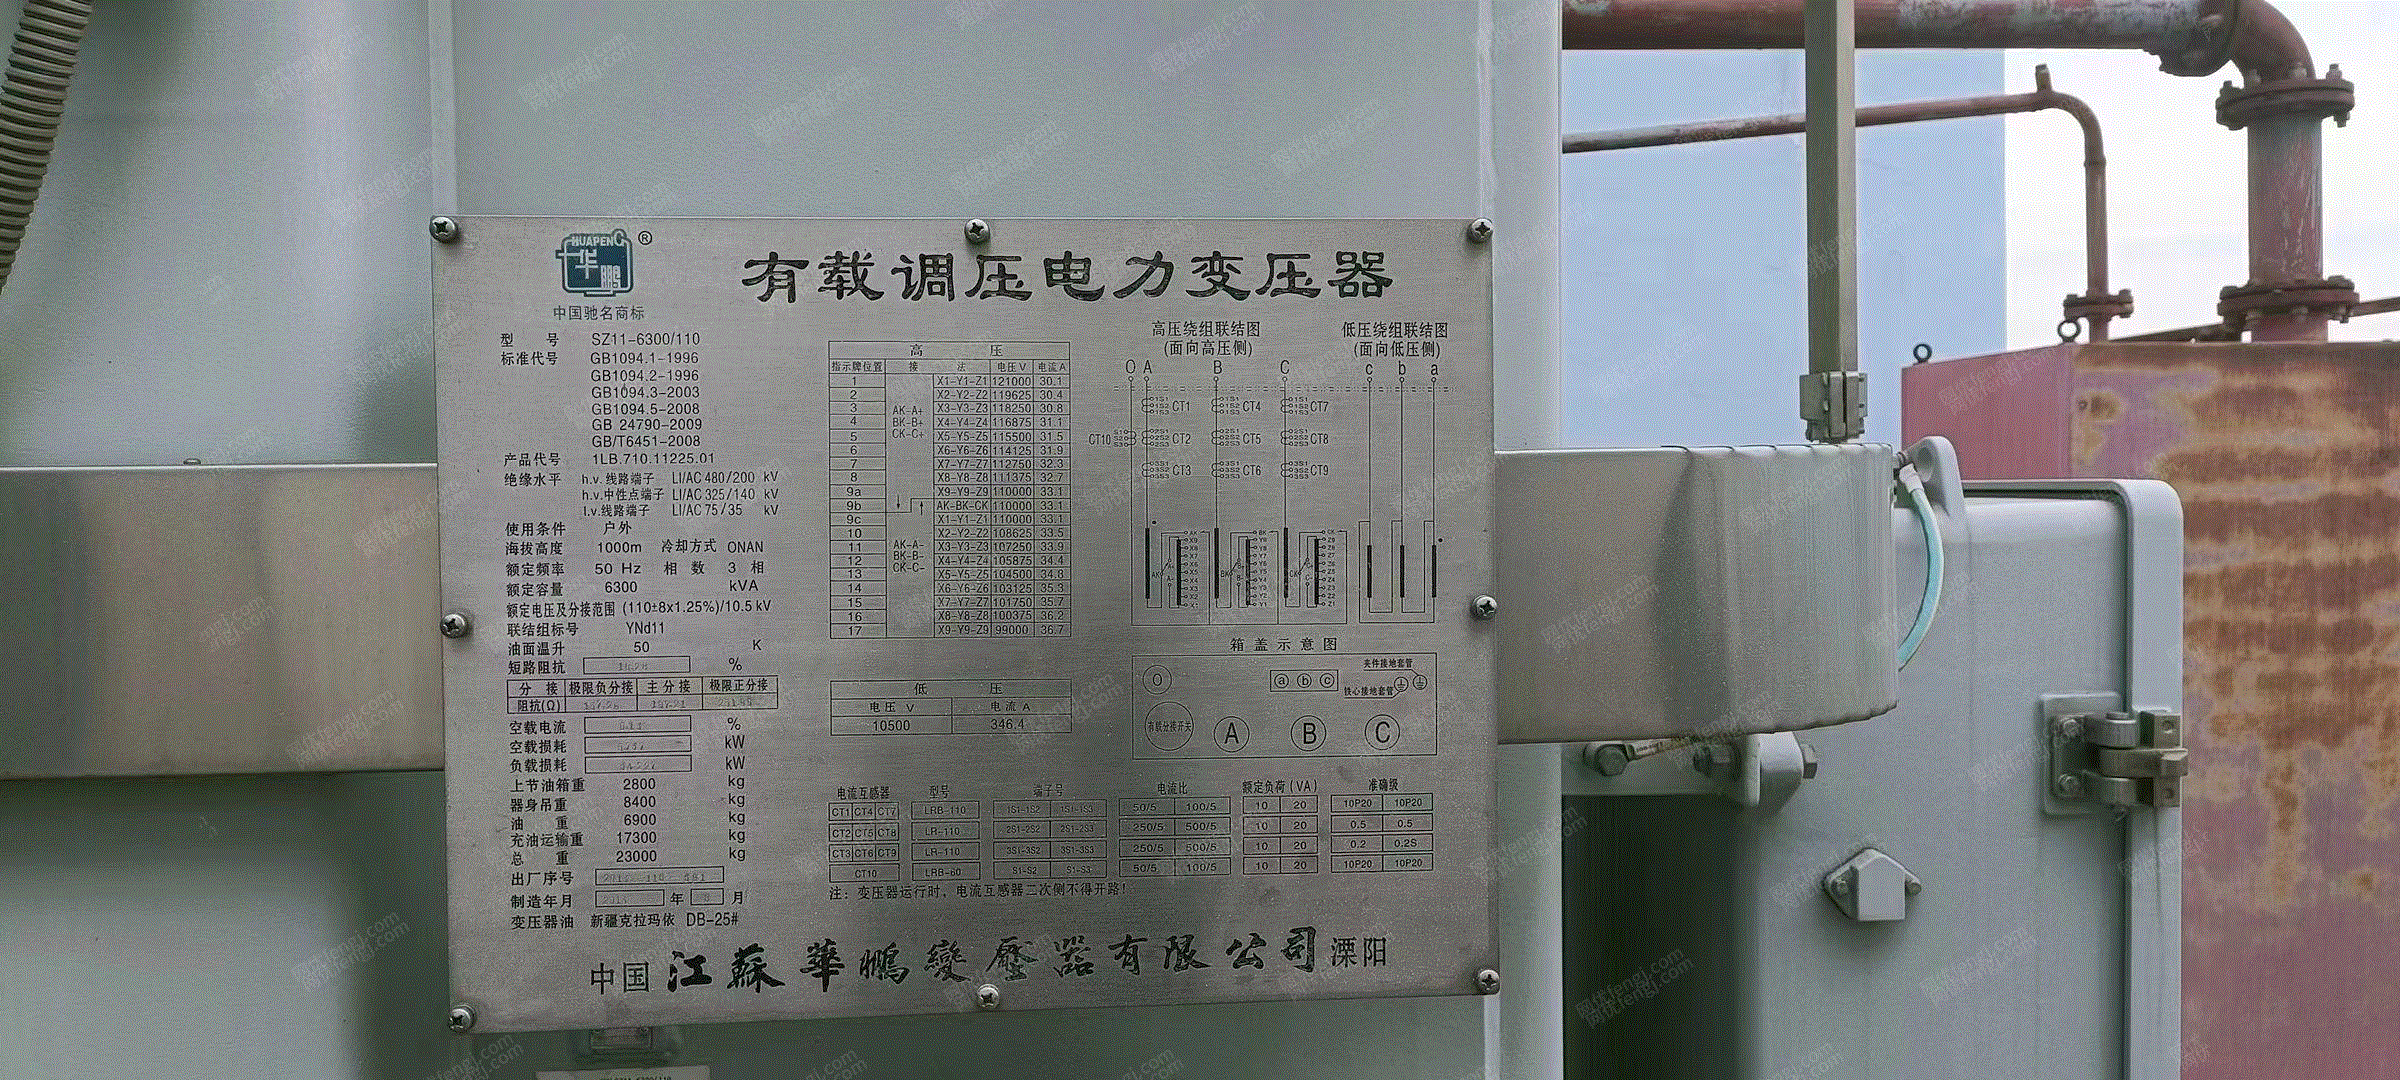 HUAPENG ®
华鹏
中国驰名商标
有载调压电力变压器
型 号 SZ11-6300/110
标准代号 GB1094.1-1996
GB1094.2-1996
GB1094.3-2003
GB1094.5-2008
GB 24790-2009
GB/T6451-2008
产品代号 1LB.710.11225.01
绝缘水平 h.v.线路端子 LI/AC 480/200 kV
h.v.中性点端子 LI/AC 325/140 kV
l.v.线路端子 LI/AC 75/35 kV
使用条件 户外
海拔高度 1000m 冷却方式 ONAN
额定频率 50 Hz 相 数 3 相
额定容量 6300 kVA
额定电压及分接范围 (110±8x1.25%)/10.5 kV
联结组标号 YNd11
油面温升 50 K
短路阻抗 %
分 接 极限负分接 主分接 极限正分接
阻抗(Ω)
空载电流 %
空载损耗 kW
负载损耗 kW
上节油箱重 2800 kg
器身吊重 8400 kg
油 重 6900 kg
充油运输重 17300 kg
总 重 23000 kg
出厂序号
制造年月 年 月
变压器油 新疆克拉玛依 DB-25#
高 压
指示牌位置 接 法 电压 V 电流 A
1 X1-Y1-Z1 121000 30.1
2 X2-Y2-Z2 119625 30.4
3 AK-A+ X3-Y3-Z3 118250 30.8
4 BK-B+ X4-Y4-Z4 116875 31.1
5 CK-C+ X5-Y5-Z5 115500 31.5
6 X6-Y6-Z6 114125 31.9
7 X7-Y7-Z7 112750 32.3
8 X8-Y8-Z8 111375 32.7
9a X9-Y9-Z9 110000 33.1
9b AK-BK-CK 110000 33.1
9c X1-Y1-Z1 110000 33.1
10 X2-Y2-Z2 108625 33.5
11 AK-A- X3-Y3-Z3 107250 33.9
12 BK-B- X4-Y4-Z4 105875 34.4
13 CK-C- X5-Y5-Z5 104500 34.8
14 X6-Y6-Z6 103125 35.3
15 X7-Y7-Z7 101750 35.7
16 X8-Y8-Z8 100375 36.2
17 X9-Y9-Z9 99000 36.7
低 压
电压 V 电流 A
10500 346.4
高压绕组联结图
(面向高压侧)
O A B C
CT1 CT4 CT7
CT10 CT2 CT5 CT8
CT3 CT6 CT9
低压绕组联结图
(面向低压侧)
c b a
箱盖示意图
O a b c
夹件接地套管
铁心接地套管
有载分接开关 A B C
电流互感器 型号 端子号 电流比 额定负荷(VA) 准确级
CT1 CT4 CT7 LRB-110 1S1-1S2 1S1-1S3 50/5 100/5 10 20 10P20 10P20
CT2 CT5 CT8 LR-110 2S1-2S2 2S1-2S3 250/5 500/5 10 20 0.5 0.5
CT3 CT6 CT9 LR-110 3S1-3S2 3S1-3S3 250/5 500/5 10 20 0.2 0.2S
CT10 LRB-60 S1-S2 S1-S3 50/5 100/5 10 20 10P20 10P20
注：变压器运行时，电流互感器二次侧不得开路！
中国 江蘇華鵬變壓器有限公司 溧阳